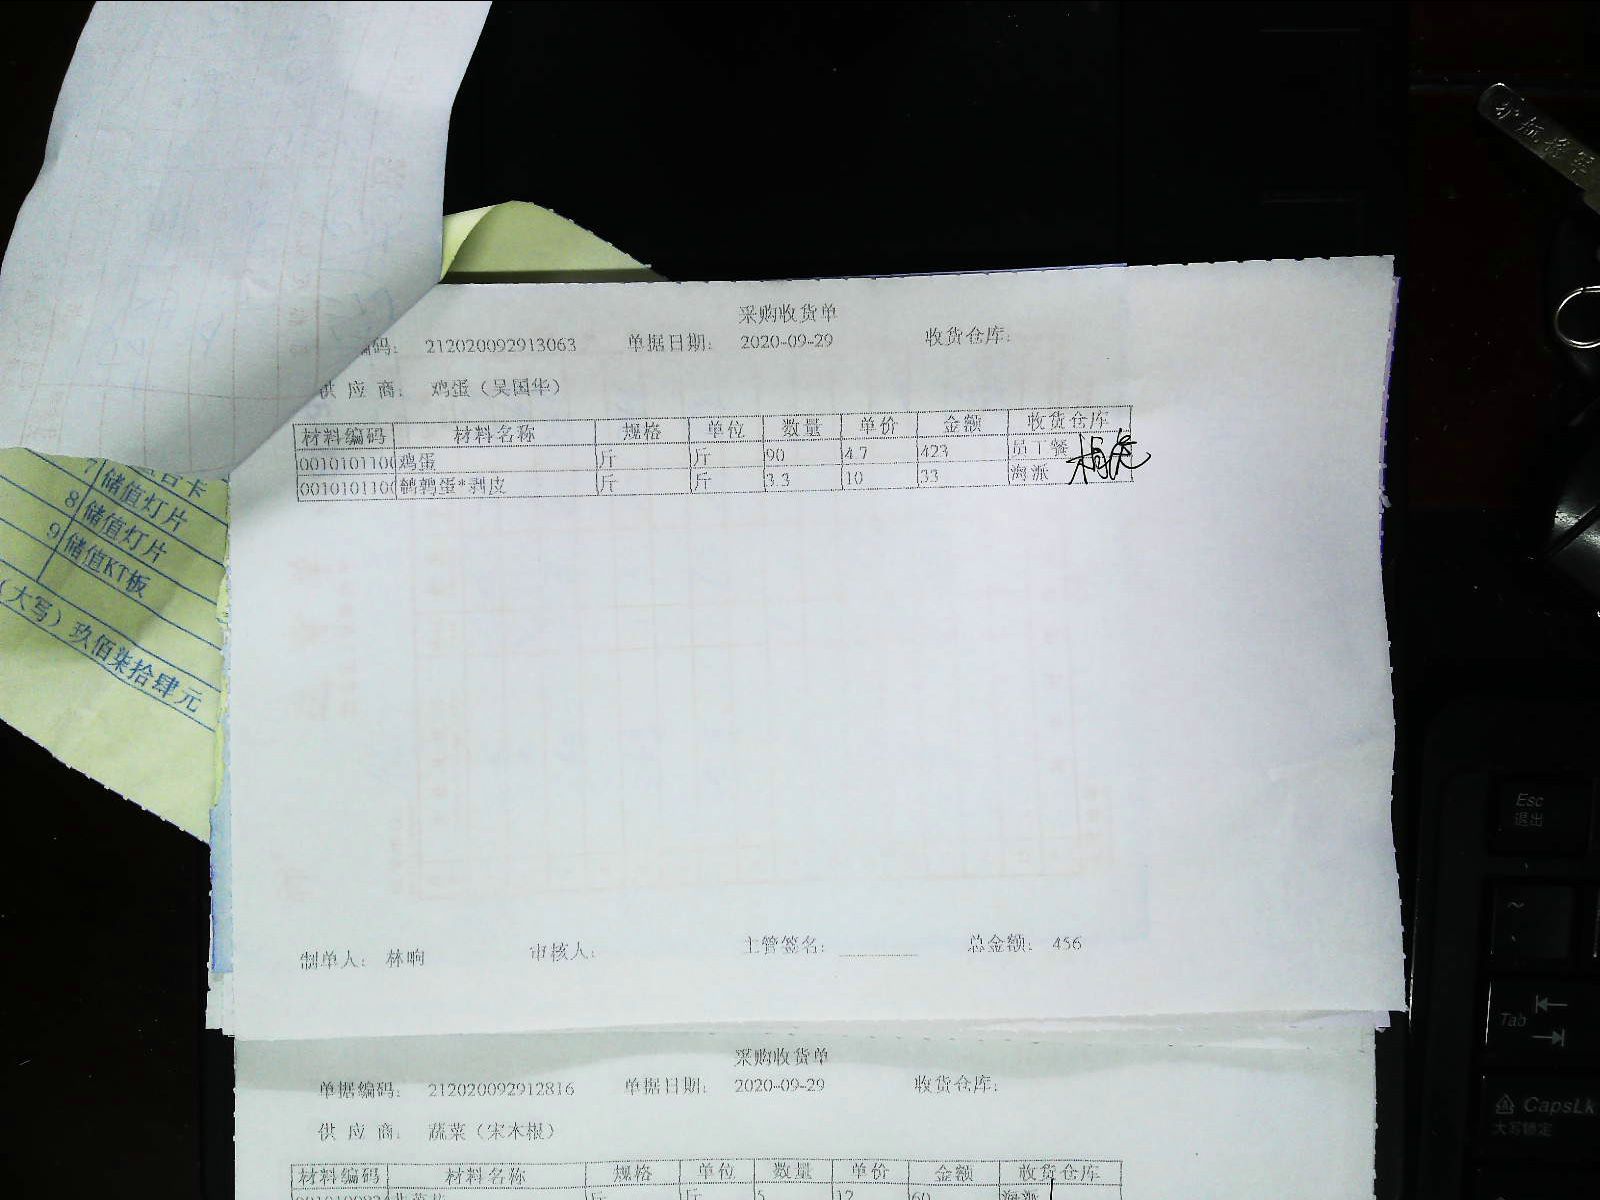 采购收货单
编码： 212020092913063 单据日期： 2020-09-29 收货仓库：
供 应 商： 鸡蛋（吴国华）
材料编码 材料名称 规格 单位 数量 单价 金额 收货仓库
0010101100 鸡蛋 斤 斤 90 4.7 423 员工餐
0010101100 鹌鹑蛋*剥皮 斤 斤 3.3 10 33 海派
制单人： 林晌 审核人： 主管签名： 总金额： 456
采购收货单
单据编码： 212020092912816 单据日期： 2020-09-29 收货仓库：
供 应 商： 蔬菜（宋木根）
材料编码 材料名称 规格 单位 数量 单价 金额 收货仓库
斤 斤 5 12 60 海派
7 卡
8 储值灯片
9 储值灯片
储值KT板
（大写）玖佰柒拾肆元
Esc
退出
~
Tab
CapsLk
大写锁定